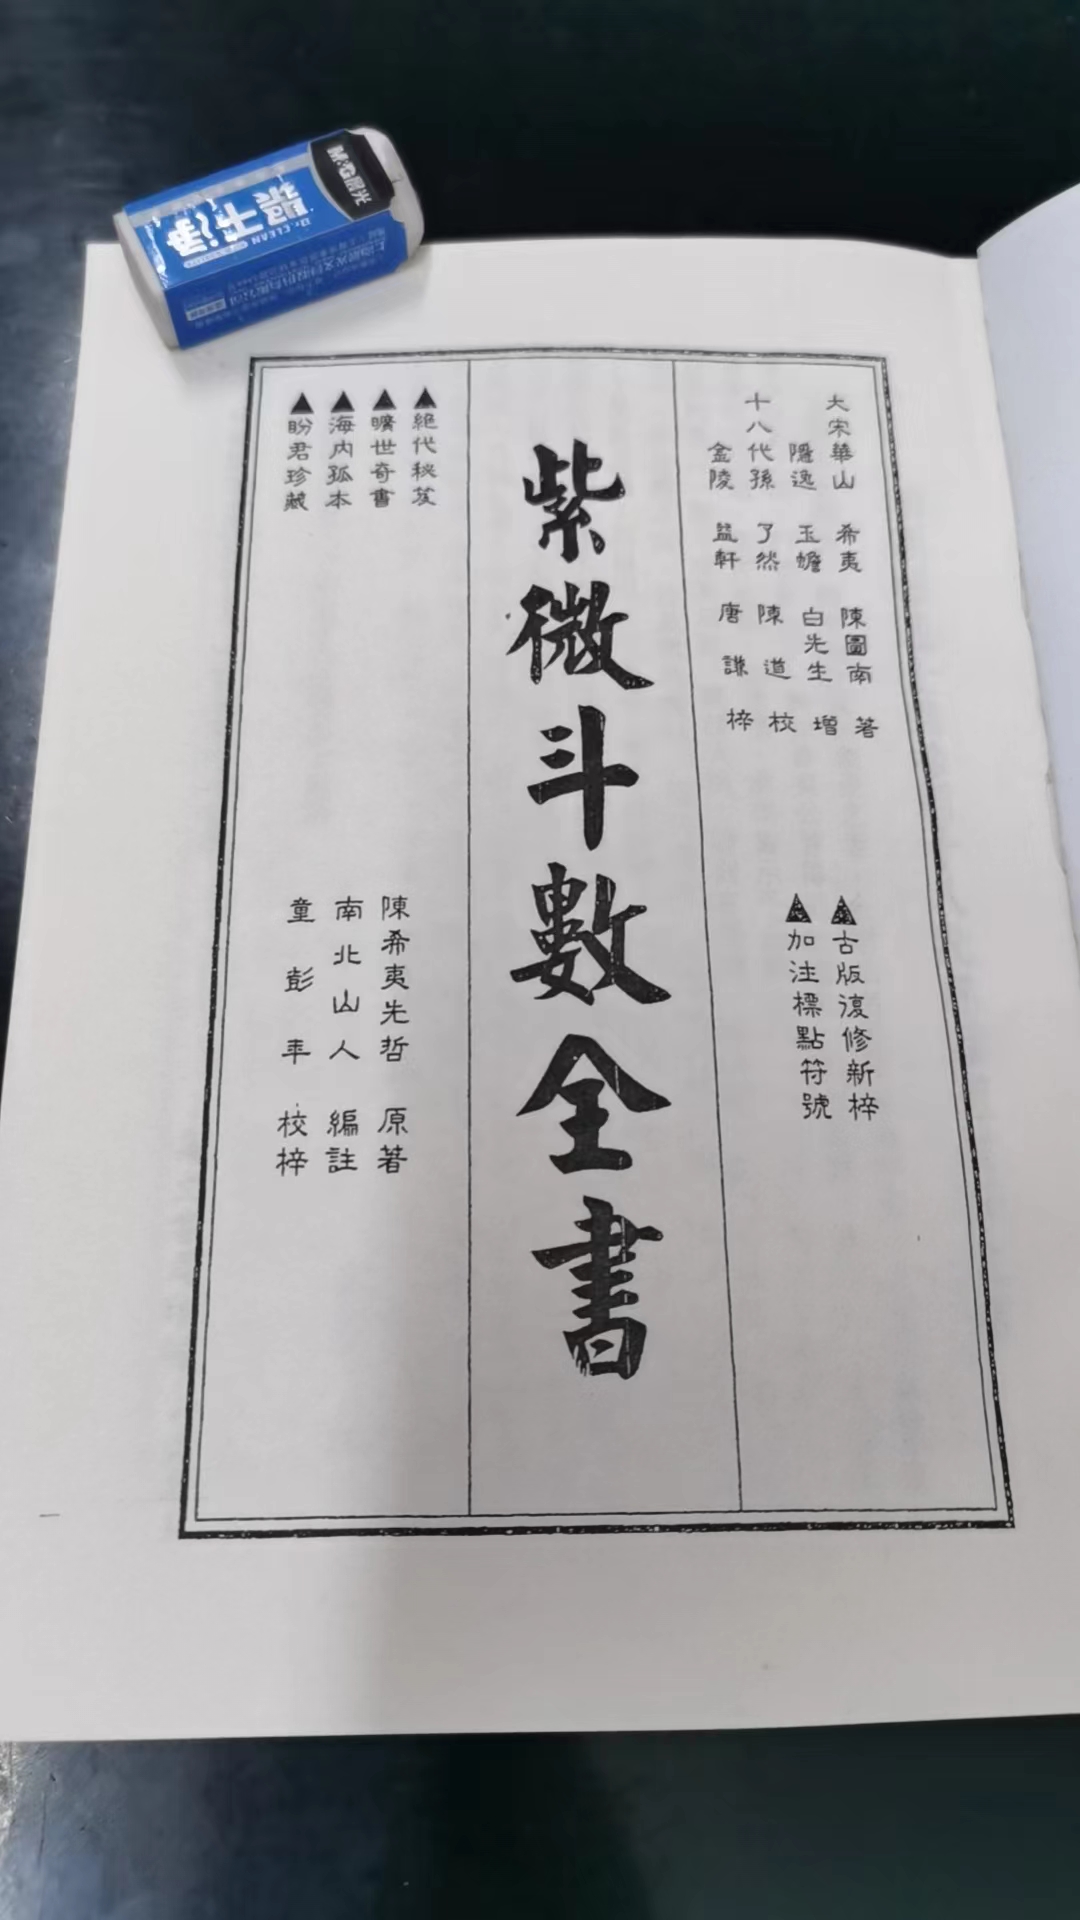 大宋華山 希夷 陳圖南 著
隱逸 玉蟾 白先生 增
十八代孫 了然 陳道 校
金陵 益軒 唐謙 梓
▲古版復修新梓
▲加注標點符號
紫微斗數全書
▲絕代秘笈
▲曠世奇書
▲海內孤本
▲盼君珍藏
陳希夷先哲 原著
南北山人 編註
童彭年 校梓
M&G晨光
超干净
Dr. CLEAN